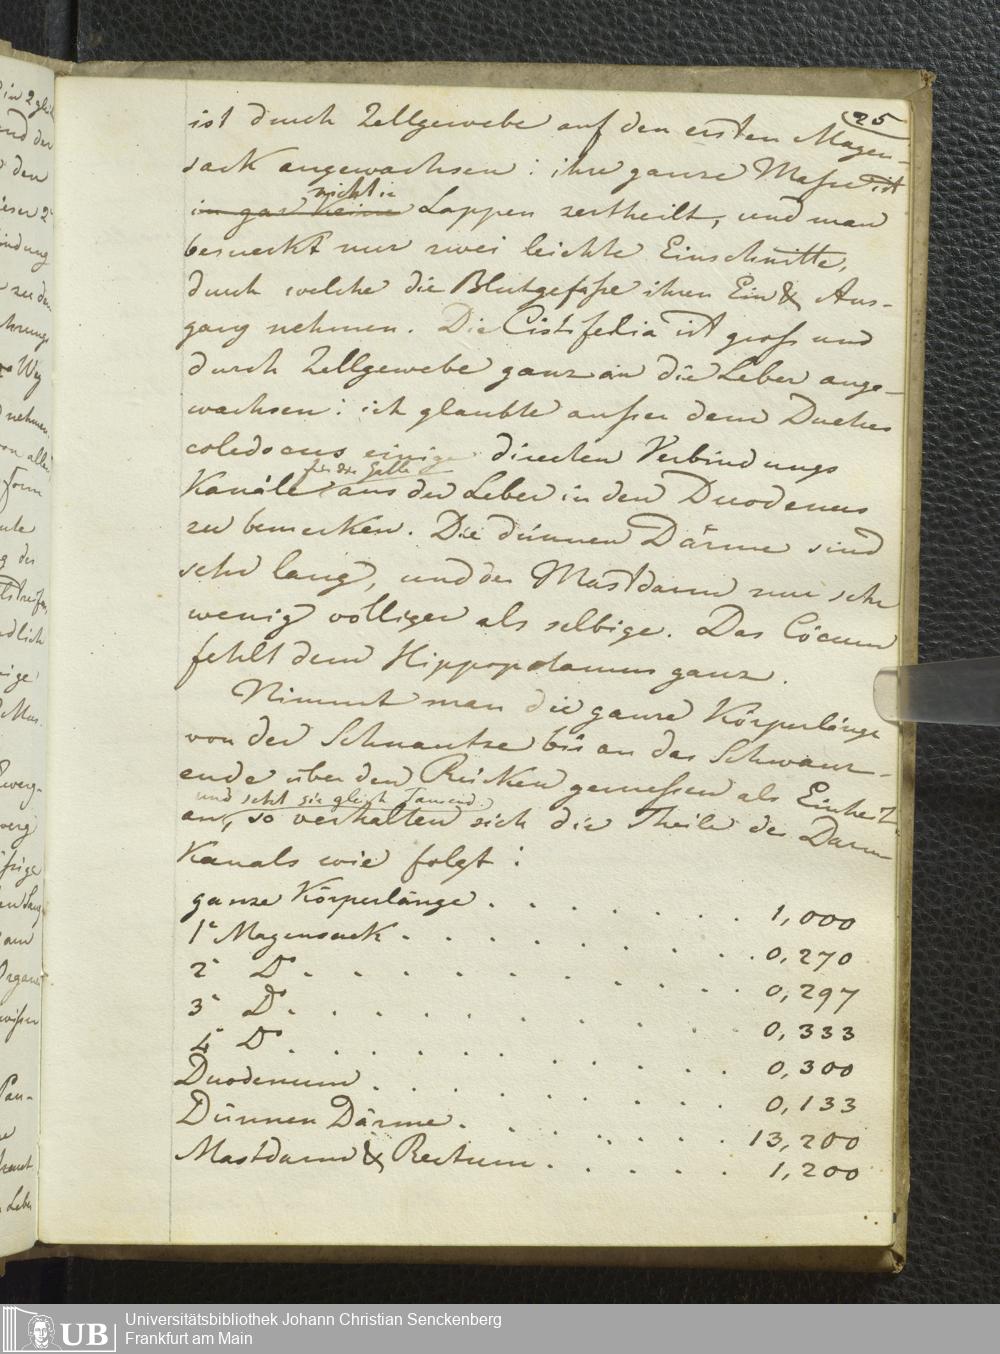 25
ist durch Zellgewebe auf den ersten Magen-
sack angewachsen: ihre ganze Maße ist
nicht in
in gar keine Lappen zertheilt, und man
bemerkt nur zwei leichte Einschnitte,
durch welche die Blutgefäße ihren Ein & Aus-
gang nehmen. Die Cist. felia ist groß und
durch Zellgewebe ganz an die Leber ange-
wachsen: ich glaubte außer dem Duchus
coledocus einige direcken Verbindungs
für die Galle
Kanäle aus der Leber in den Duodenus
zu bemerken. Die dünnen Därme sind
sehr lang, und der Mastdarm nur sehr
wenig völliger als selbige. Das Cöcum
fehlt dem Hippopotamus ganz.
Nimmt man die ganze Körperlänge
von der Schnautze bis an das Schwanz-
ende über den Rücken gemeßen als Einheit
und setzt sie gleich Tausend
an, so verhalten sich die Theile des Darm
Kanals wie folgt:
ganze Körperlänge . . . . . . . 1,000
1r Magensack . . . . . . . . 0,270
2r Do . . . . . . . . . 0,297
3r Do . . . . . . . . 0,333
4r Do . . . . . . . . . 0,300
Duodenum . . . . . . . . 0,133
Dünnen Därme . . . . . . . 13,200
Mastdarm & Rectum . . . . . . 1,200
UB
Universitätsbibliothek Johann Christian Senckenberg
Frankfurt am Main